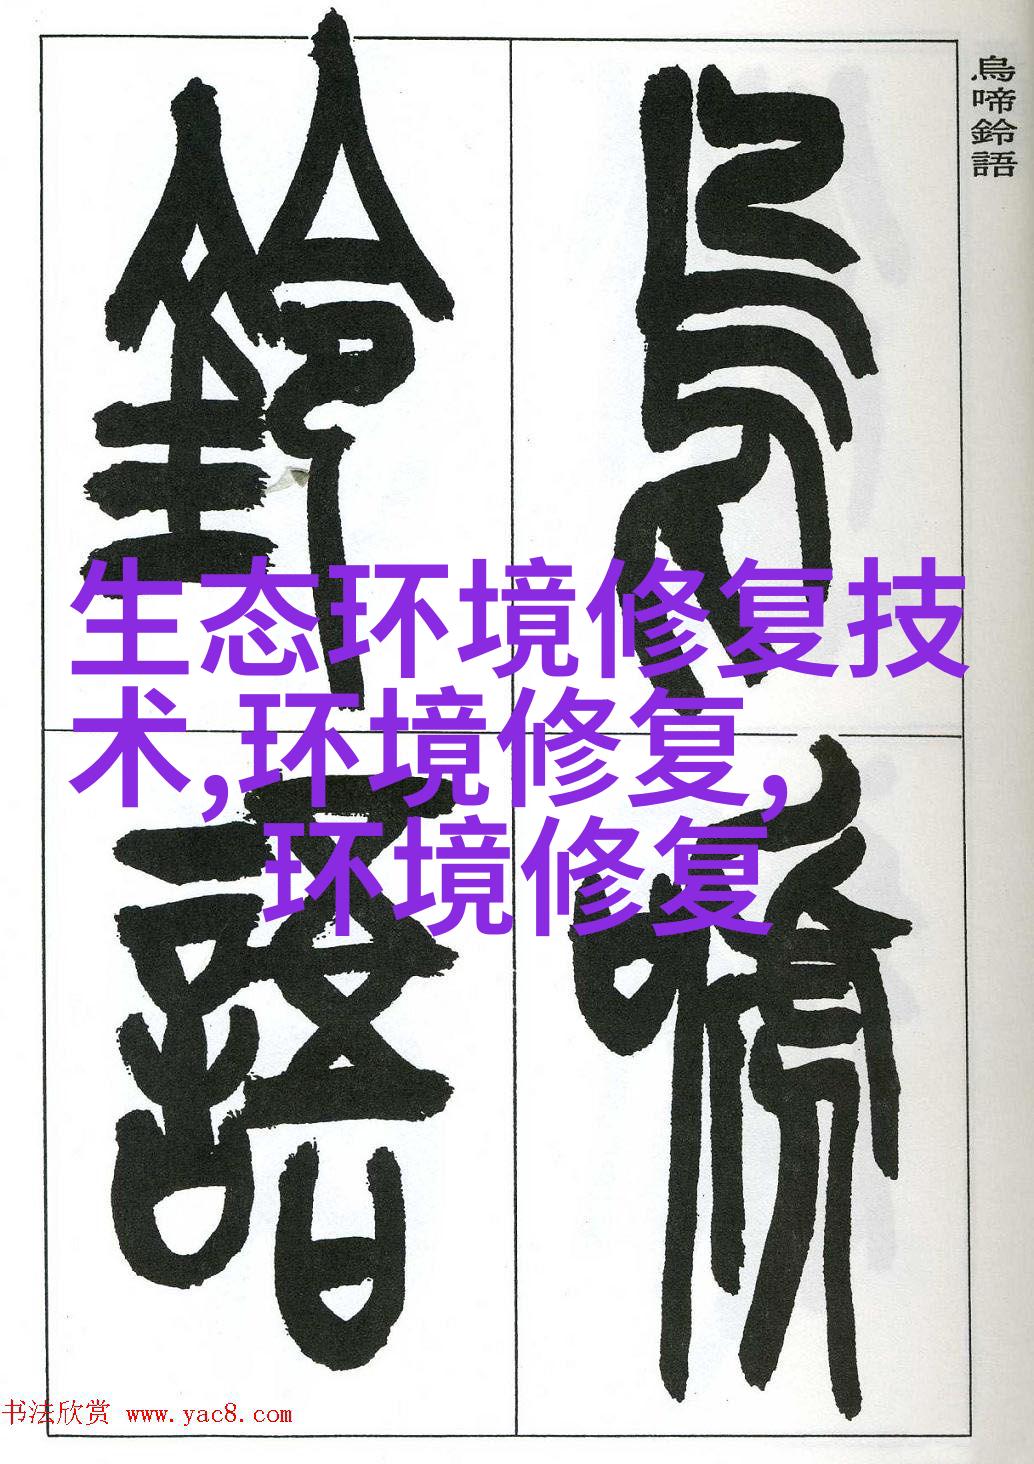 烏啼鈴語
烏啼
鈴語
生态环境修复技
术,环境修复,
环境修复
书法欣赏 www.yac8.com